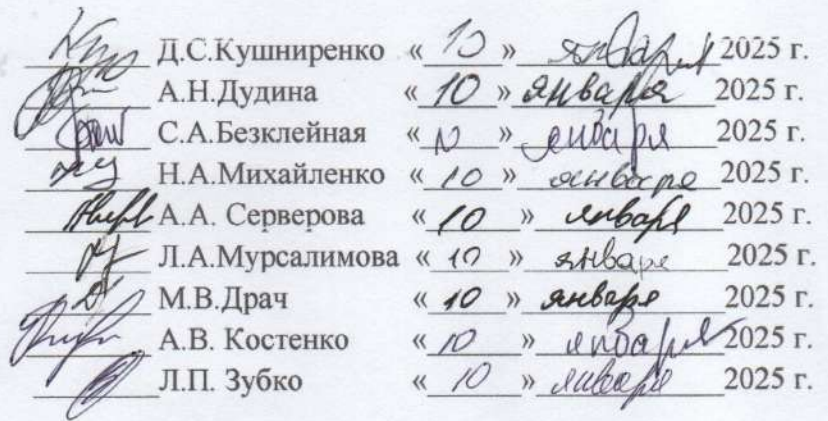 Д.С.Кушниренко « 10 » января 2025 г.
А.Н.Дудина « 10 » января 2025 г.
С.А.Безклейная « 10 » января 2025 г.
Н.А.Михайленко « 10 » января 2025 г.
А.А. Серверова « 10 » января 2025 г.
Л.А.Мурсалимова « 10 » января 2025 г.
М.В.Драч « 10 » января 2025 г.
А.В. Костенко « 10 » января 2025 г.
Л.П. Зубко « 10 » января 2025 г.